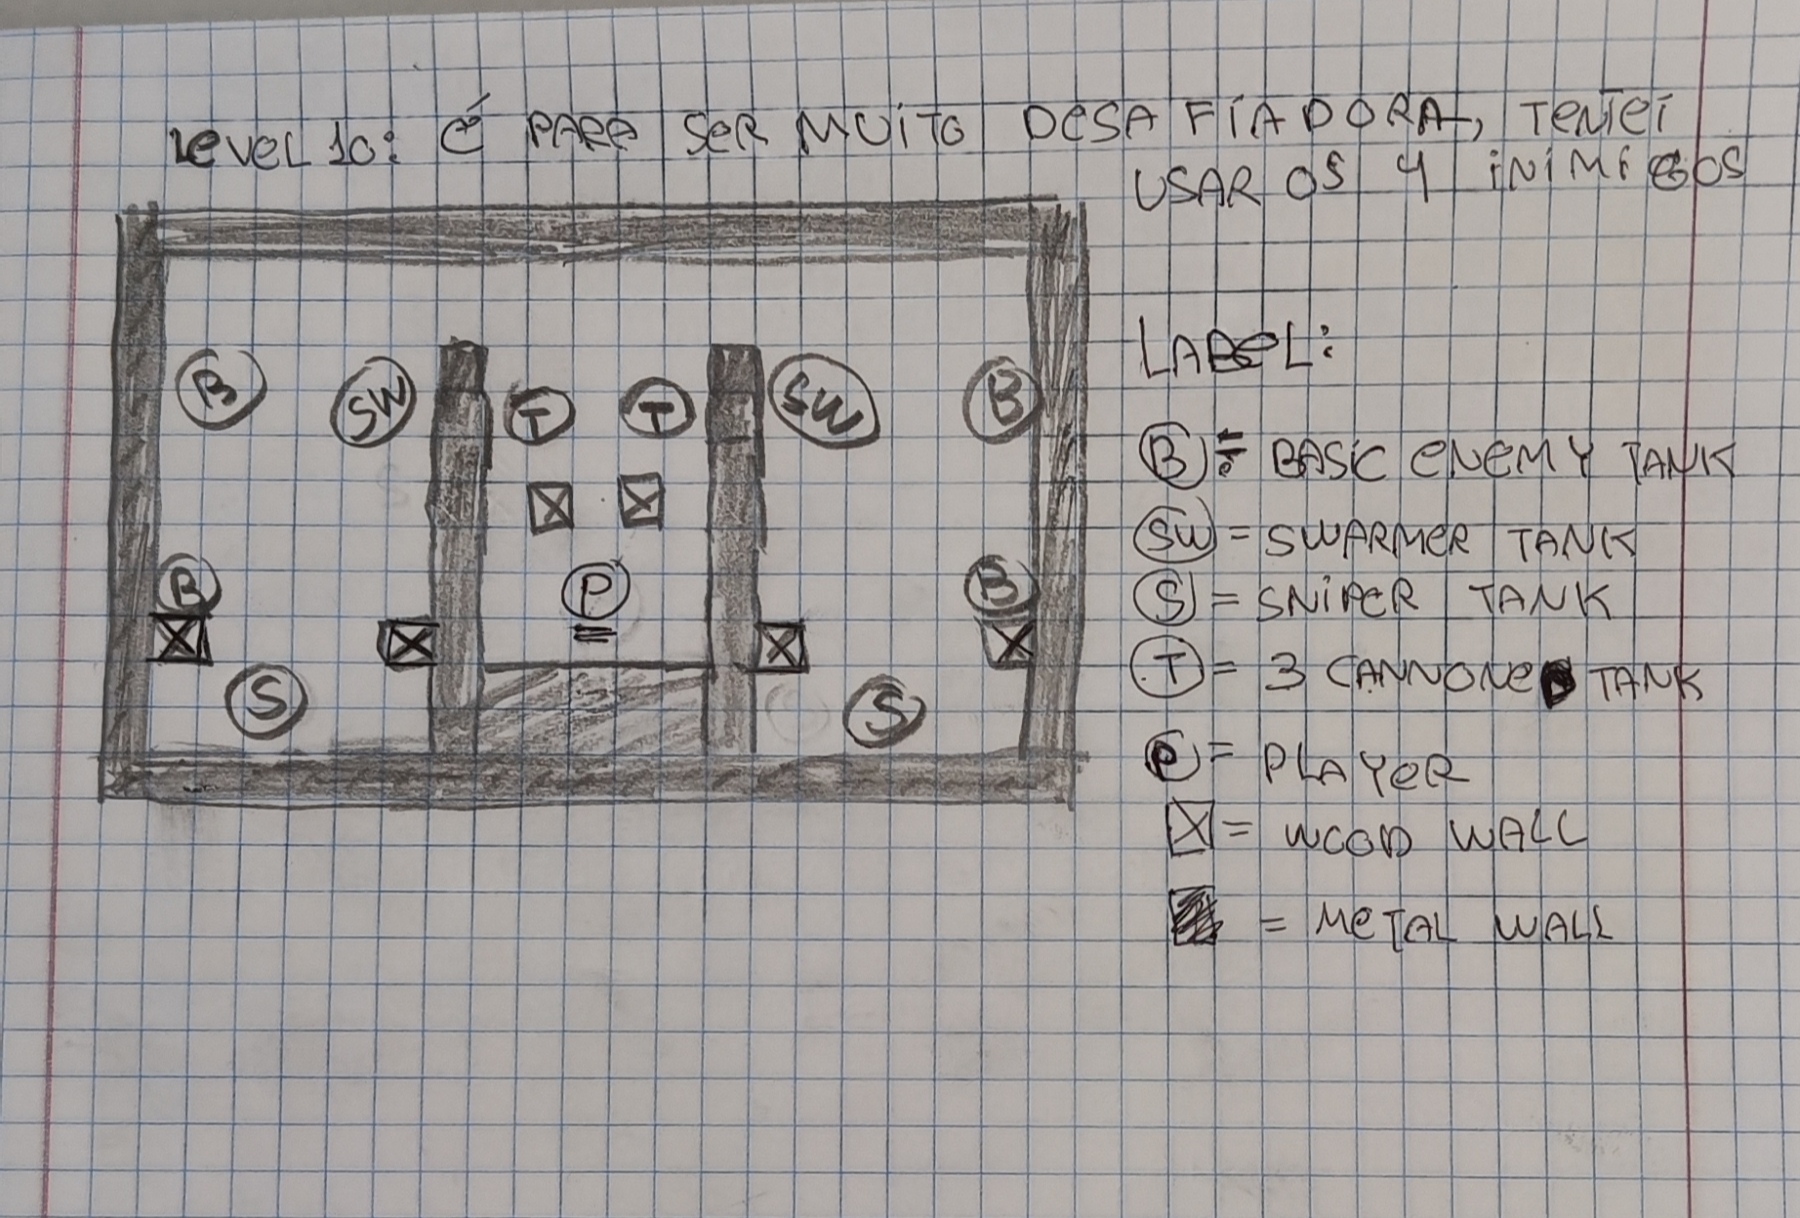 LEVEL 10: É PARA SER MUITO DESAFIADORA, TENTEI
USAR OS 4 INIMIGOS
LABEL:
B SW T T SW B
B P B
S S
B = BASIC ENEMY TANK
SW = SWARMER TANK
S = SNIPER TANK
T = 3 CANNONE TANK
P = PLAYER
= WOOD WALL
= METAL WALL